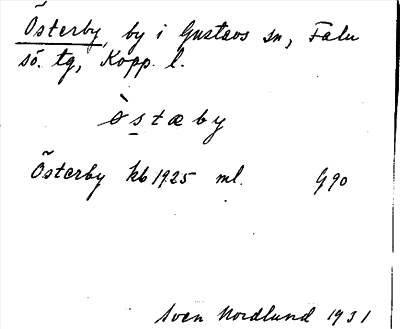 Österby, by i Gustavs sn, Falu
sö. tg, Kopp. l.
òstæby
Österby kb 1925 ml. G90
Sven Nordlund 1931